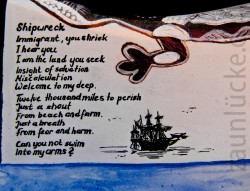 Shipwreck
Immigrant, you shriek
I hear you
I am the land you seek
Insight of salvation
Miscalculation
Welcome to my deep.
Twelve thousand miles to perish
Just a shout
From beach and farm.
Just a breath
From fear and harm.
Can you not swim
Into my arms?
zaunlücke